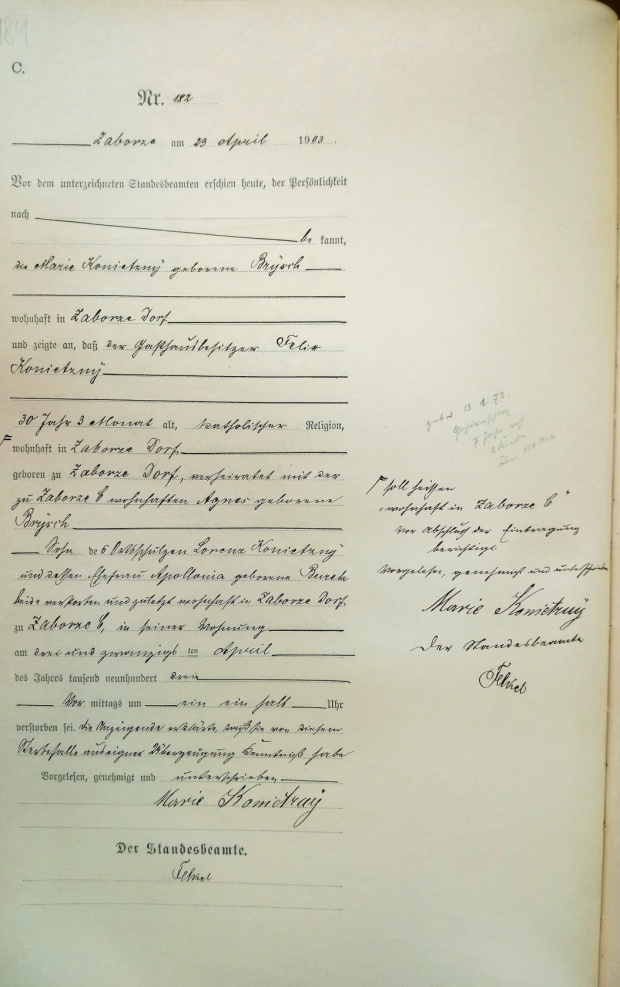 184
C.
Nr. 182
Zaborze am 23 April 1903.
Vor dem unterzeichneten Standesbeamten erschien heute, der Persönlichkeit
nach
be kannt,
die Marie Konietzny geborene Brysch
wohnhaft in Zaborze Dorf
und zeigte an, daß der Gasthausbesitzer Felix
Konietzny
30 Jahr 3 Monat alt, katholischer Religion,
wohnhaft in Zaborze Dorf
geboren zu Zaborze Dorf, verheiratet mit der
zu Zaborze C wohnhaften Agnes geborene
Brysch
Sohn des Ortsschulzen Lorenz Konietzny
und dessen Ehefrau Apollonia geborene
beide verstorben und zuletzt wohnhaft in Zaborze Dorf
zu Zaborze C, in seiner Wohnung
am drei und zwanzigs ten April
des Jahres tausend neunhundert drei
Vor mittags um ein ein halb Uhr
verstorben sei. Die Anzeigende erklärte, daß sie von diesem
Sterbefalle aus eigner Überzeugung Kenntniß habe
Vorgelesen, genehmigt und unterschrieben
Marie Konietzny
Der Standesbeamte.
geb. d. 13. 1. 73.
soll heissen
"wohnhaft in Zaborze C"
vor Abschluß der Eintragung
berichtigt.
Vorgelesen, genehmigt und unterschrieben
Marie Konietzny
Der Standesbeamte